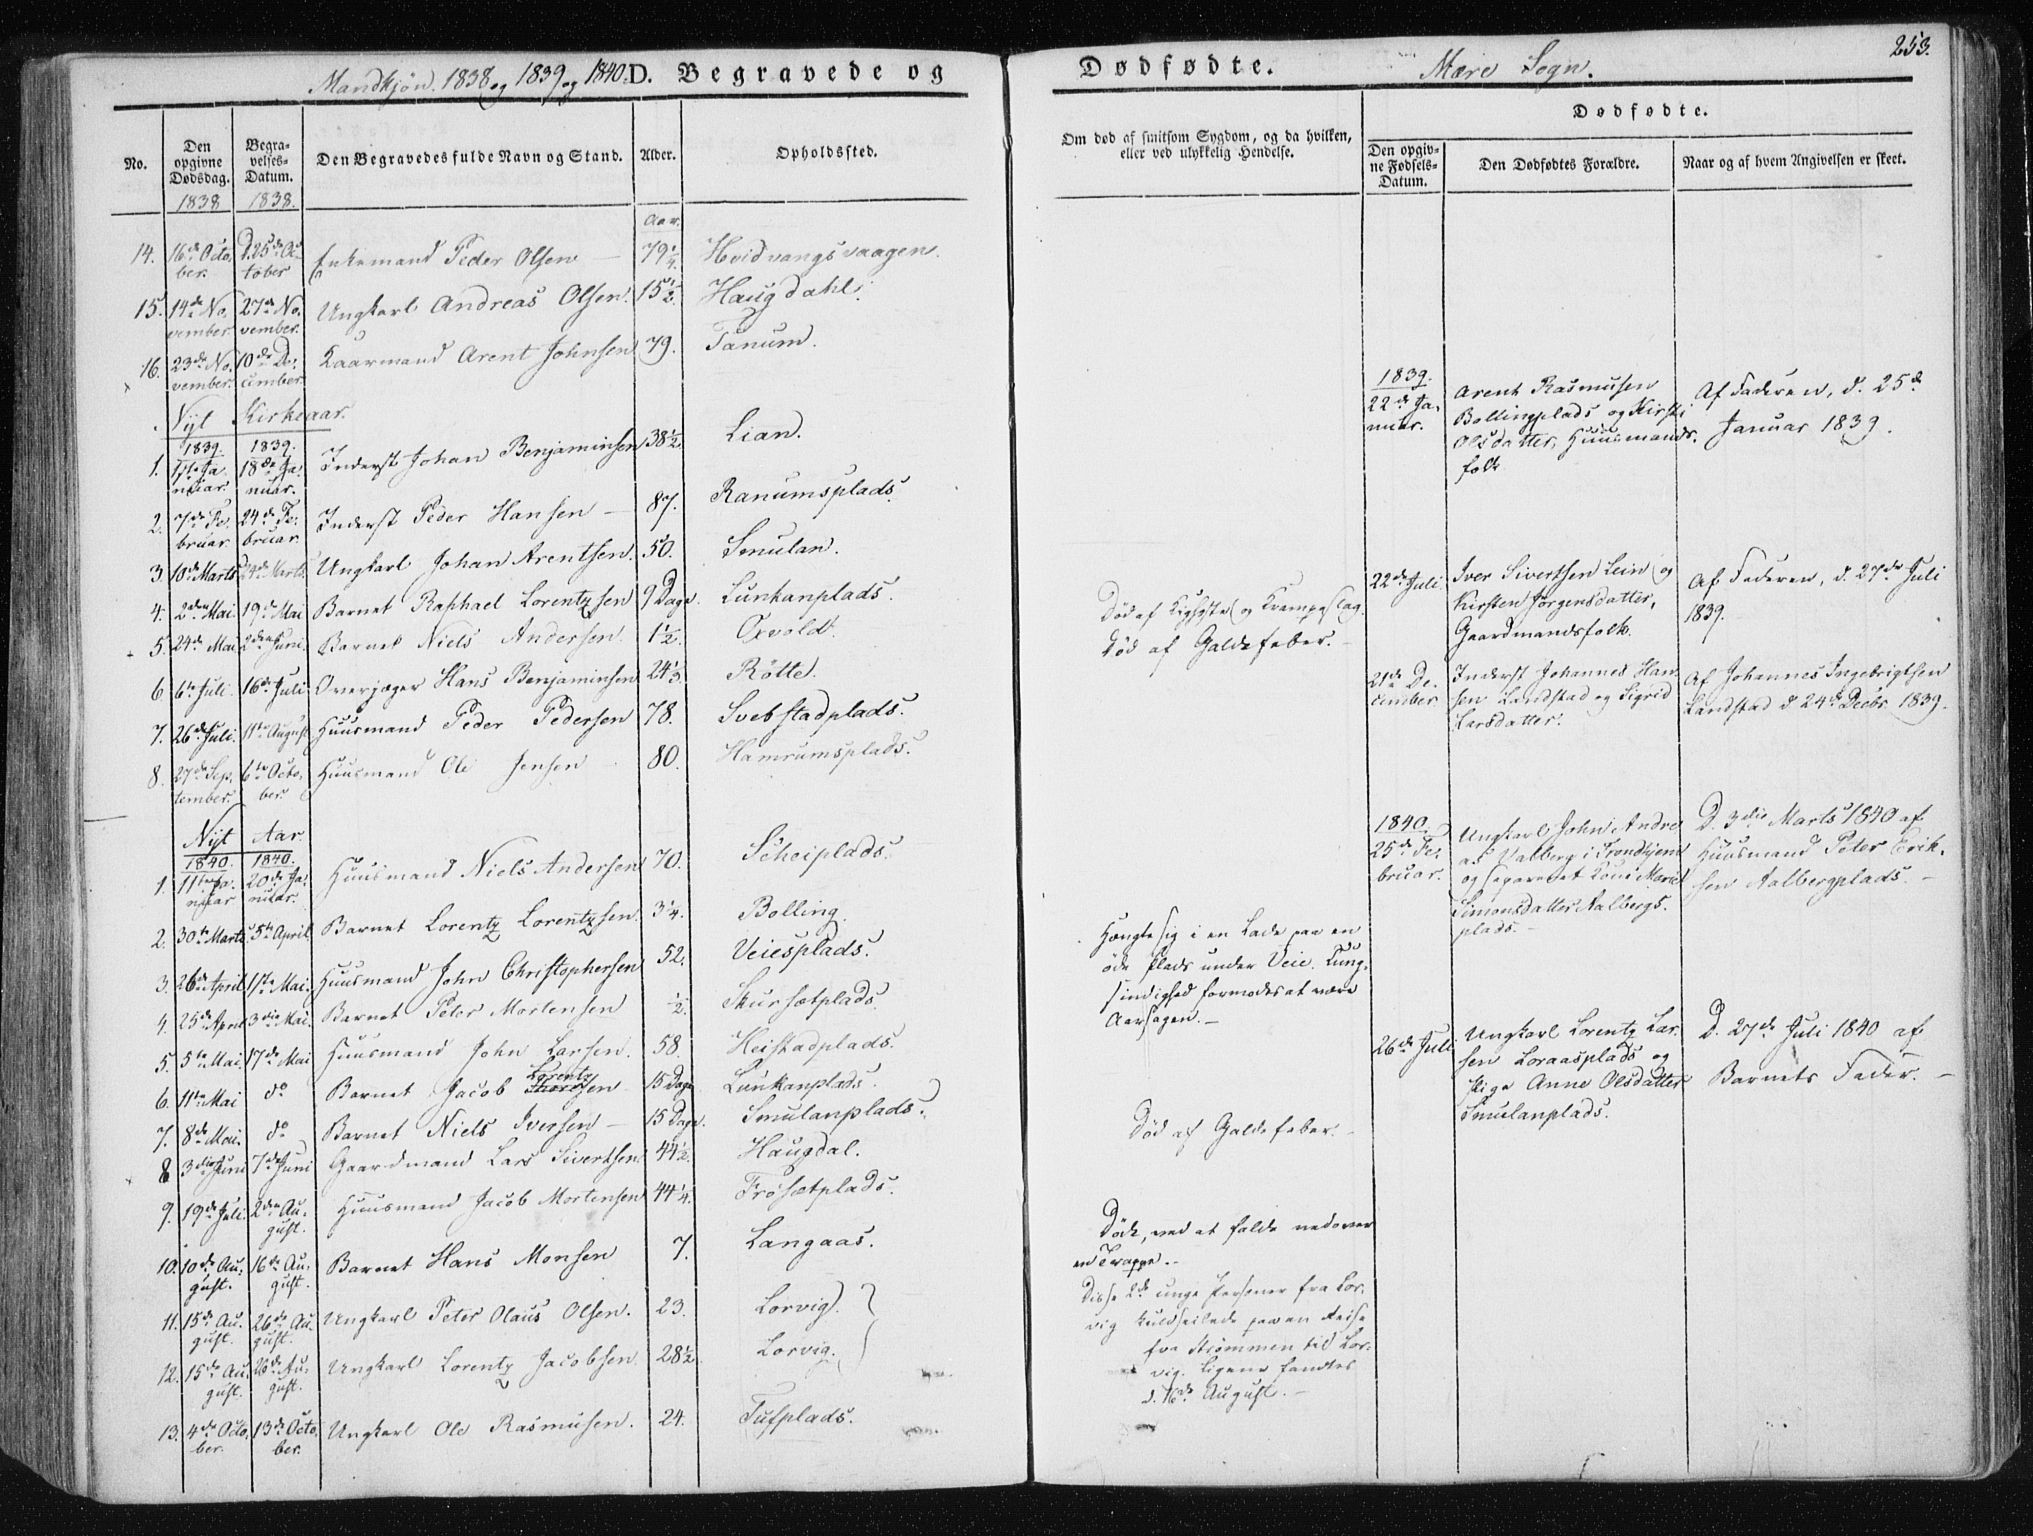 Mandkjøn. 1838 og 1839 og 1840. D. Begravede og
No.
Den opgivne Dødsdag.
Begravelses-Datum.
Den Begravedes fulde Navn og Stand.
Alder.
Opholdssted.
1838 1838.
Aar.
14. 16de October. D. 25de October Enkemand Peder Olsen — 79 1/4. Hvidvangsvaagen.
15. 14de November 27de November. Ungkarl Andreas Olsen. 15 1/2. Haugdahl.
16. 23de November. 10de December. Kaarmand Arent Johnsen 79. Tanum.
Nyt Kirkeaar.
1839. 1839.
1. Januar. 18de Januar. Inderst Johan Benjaminsen 38 1/2. Lian.
2. 7de Februar. 24de Februar. Inderst Peder Hansen — 87. Ranumsplads.
3. 10de Marts 24de Marts. Ungkarl Johan Arentsen. 50. Smulan.
4. 2den Mai. 19de Mai Barnet Raphael Lorentzsen 9 Dage. Lunkanplads.
5. 24de Mai 2den Juni. Barnet Niels Andersen. 1 1/2. Oxvold.
6. 6te Juli. 16de Juli Overjæger Hans Benjaminsen 24 1/3. Rötte.
7. 26de Juli. 11te August Huusmand Peder Pedersen 78. Svebstadplads.
8. 27de September. 6te October. Huusmand Ole Jensen 80. Hamrumsplads.
Nyt Aar.
1840. 1840.
1. 11te Januar 20de Januar. Huusmand Niels Andersen 70. Scheiplads.
2. 30te Marts. 5te April. Barnet Lorentz Lorentzsen. 3 1/4. Bolling.
3. 26de April 17de Mai. Huusmand John Christophersen 52. Veiesplads.
4. 25de April 3die Mai. Barnet Peter Mortensen 1/2. Skursætplads.
5. 5te Mai. 17de Mai Huusmand John Larsen. 58. Heistadplads.
6. 11te Mai do Barnet Jacob Lorentzsen 15 Dage Lunkanplads.
7. 8de Mai. do Barnet Niels Iversen — 15 Dage. Smulanplads.
8 3die Juni 7de Juni Gaardmand Lars Sivertsen 44 1/2. Haugdal.
9. 19de Juli. 2den August. Huusmand Jacob Mortensen 44 1/4. Frösætplads.
10. 10de August. 16de August. Barnet Hans Monsen 7. Langaas.
11. 15de August. 26de August. Ungkarl Peter Olaus Olsen. 23. Lorvig.
12. 15de August. 26de August. Ungkarl Lorentz Jacobsen 28 1/2. Lorvig.
13. 4de October. 13de October. Ungkarl Ole Rasmusen. 24. Tufplads.
Dødfødte. Mære Sogn. 253.
Om død af smitsom Sygdom, og da hvilken,
eller ved ulykkelig Hendelse.
Dødfødte.
Den opgivne Fødsels-Datum.
Den Dødfødtes Forældre.
Naar og af hvem Angivelsen er skeet.
1839.
22de Januar.
Arent Rasmusen
Bollingplads og Kirsti
Olsdatter, Huusmands-
folk
Af Faderen, d. 25de
Januar 1839.
Död af Kighoste og Krampeslag.
Död af Galdefeber. —
22de Juli
Iver Sivertsen Lein og
Kirsten Jörgensdatter,
Gaardmandsfolk.
Af Faderen, d. 27de Juli
1839. —
21de December
Inderst Johannes Han-
sen Landstad og Sigrid
Larsdatter.
Af Johannes Ingebrigtsen
Landstad d 24de Decbr. 1839.
1840.
25de Februar.
Ungkarl John Andre-
as Valberg i Trondhjem
og separeret Kone Marit
Simonsdatter Aalbergs-
plads. —
D. 3die Marts 1840 af
Huusmand Peter Erik-
sen Aalbergplads —
Hængte sig i en Lade paa en
öde Plads under Veie. Tung-
sindighed formodes at være
Aarsagen. —
26de Juli
Ungkarl Lorentz Lar-
sen Loraasplads og
Pige Anne Olsdatter
Smulanplads.
D. 27de Juli 1840 af
Barnets Fader. —
Död af Galdefeber. —
Döde, ved at falde nedover
en Trappe. —
Disse 2de unge Personer fra Lor-
vig kuldseilede paa en Reise
fra Strömmen til Lor-
vig. Ligene fandtes
d. 16de August. —